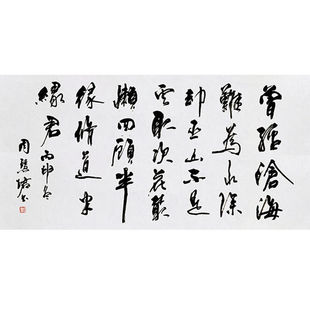 曾經滄海
難為水除
却巫山不是
雲取次花叢
懶回顧半
緣修道半
緣君 丙申冬
周慧书